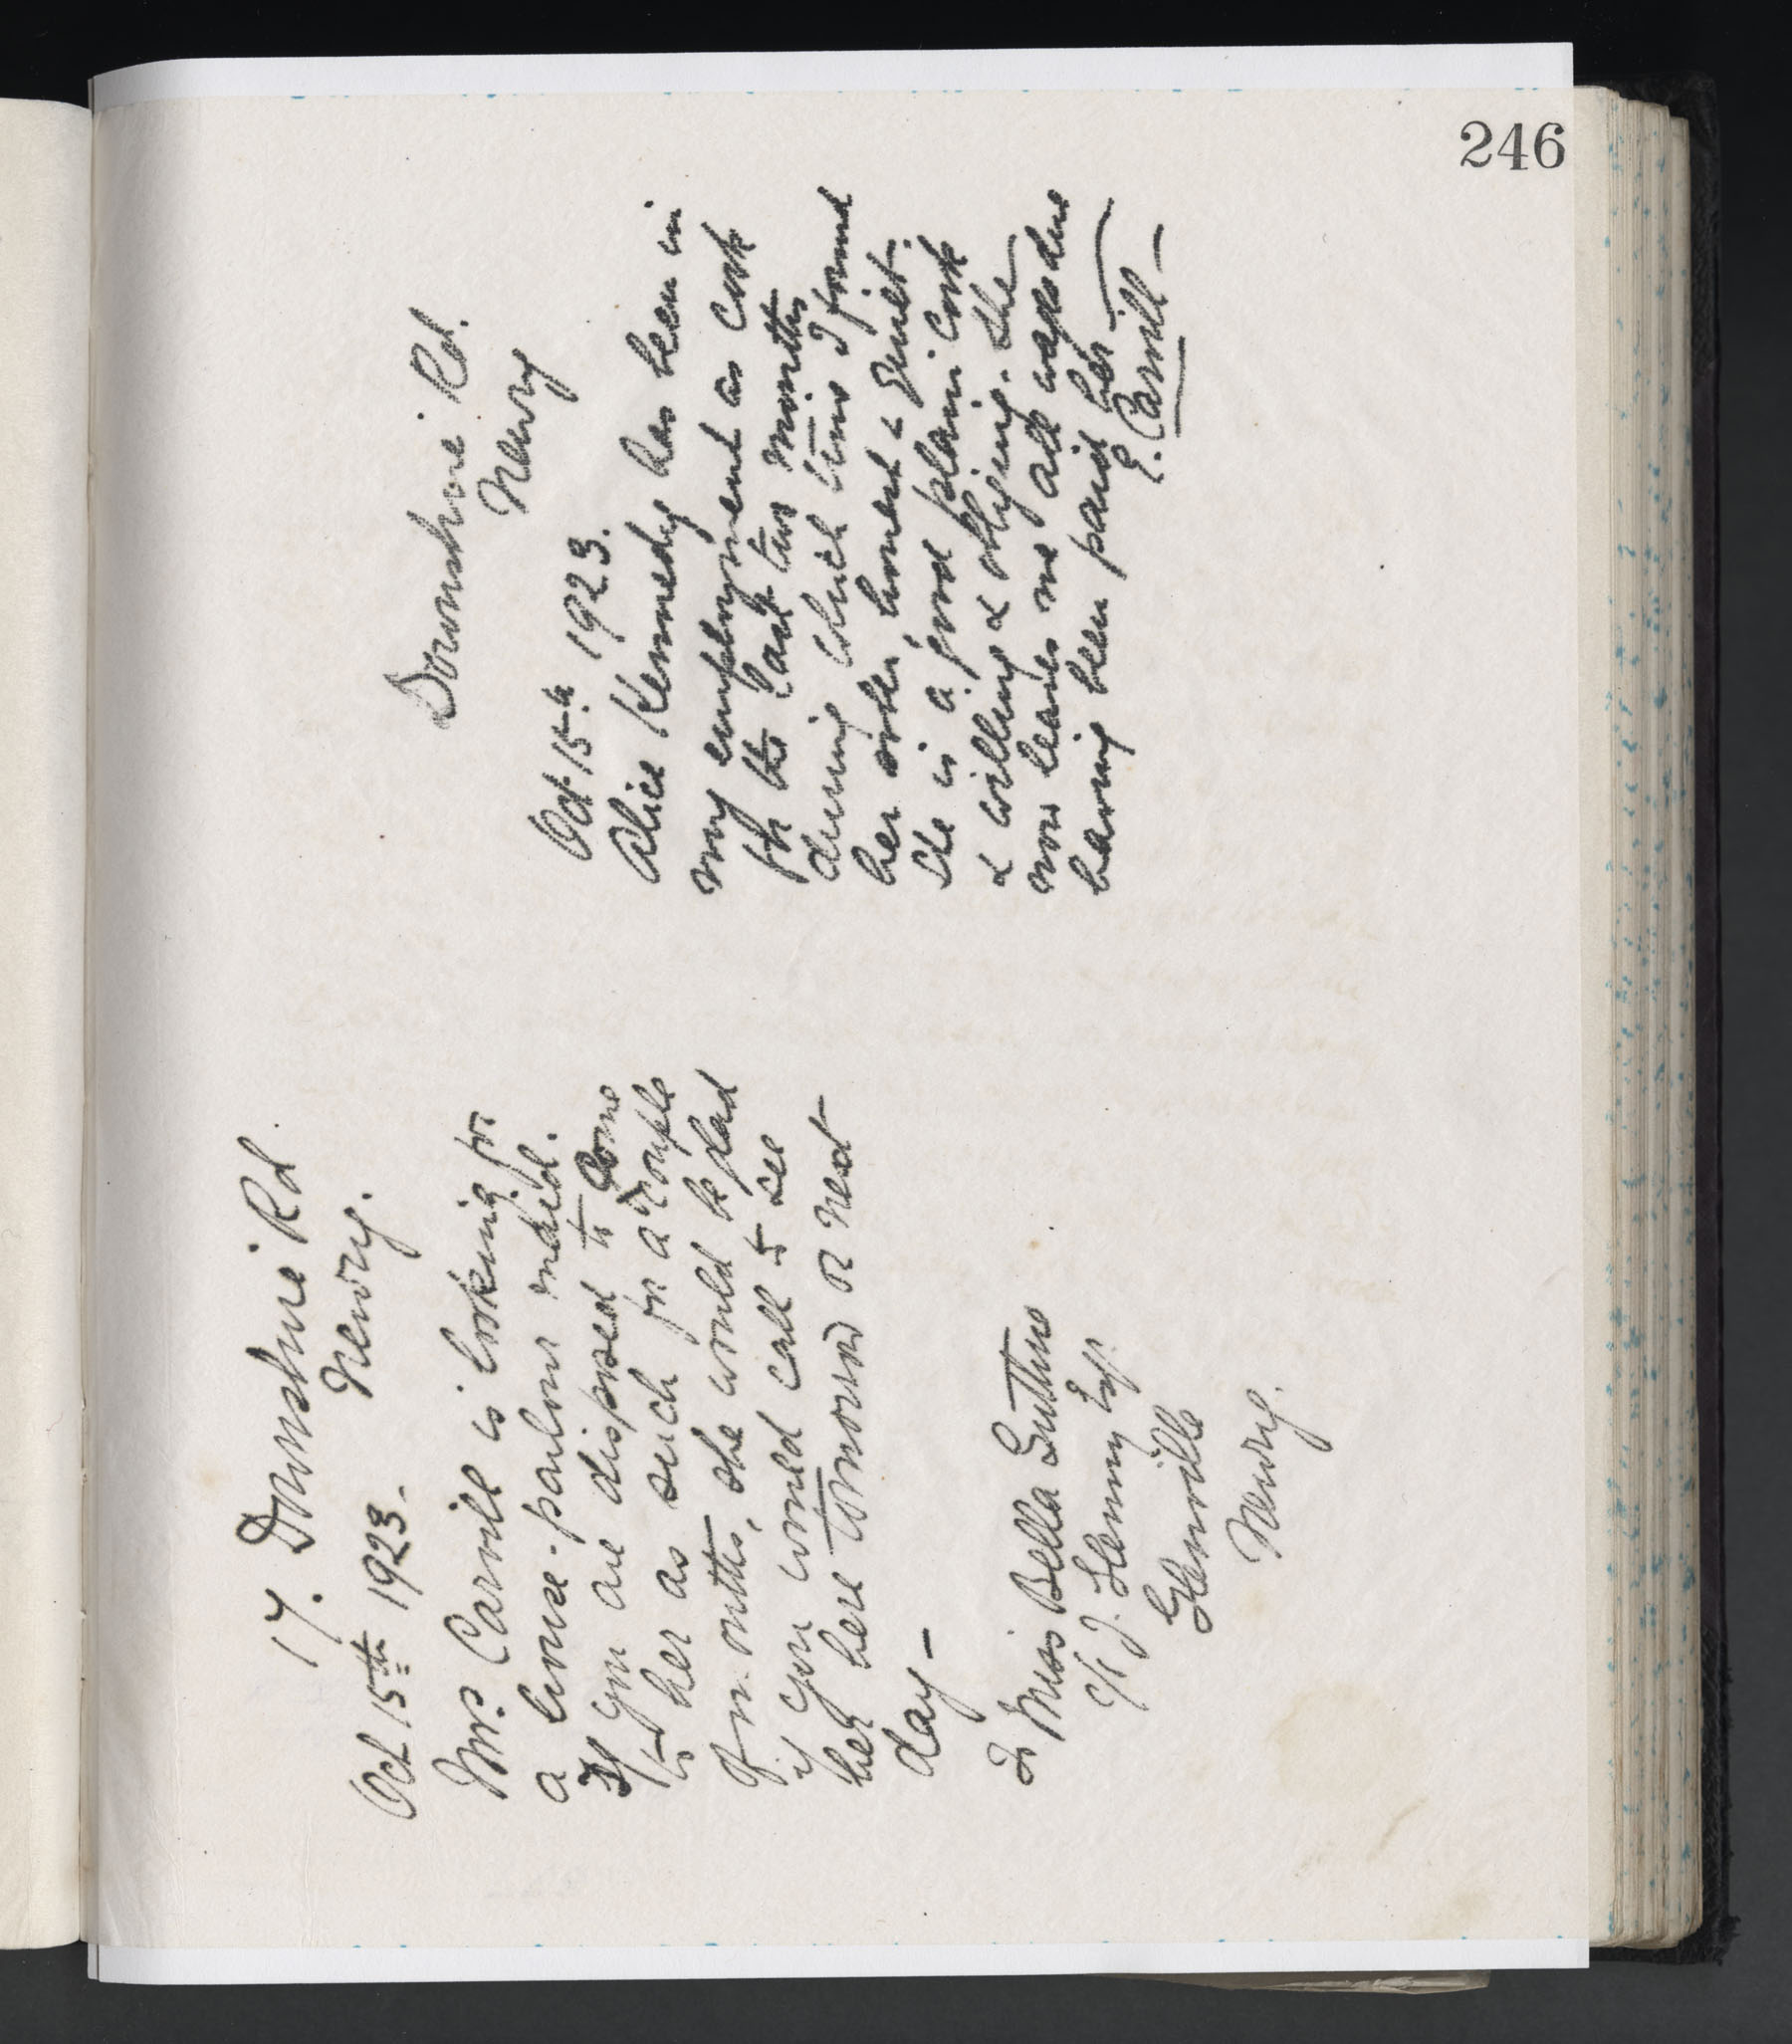 246
17. Downshire Rd.
Newry.
Oct 15th 1923.
Mrs. Carvill is looking for
a house-parlour maid.
If you are disposed to come
to her as such for a couple
of months, she would be glad
if you would call to see
her here tomorrow or next
day —
To Miss Bella Guthrie
c/o J. Fleming Esq.
Glenville
Newry.
Downshire Rd.
Newry
Oct 15th 1923.
Alice Kennedy has been in
my employment as cook
for the last two months
during which time I found
her sober, honest & quiet.
She is a good plain cook
& willing & obliging. She
now leaves me all wages due
having been paid her —
E. Carvill —